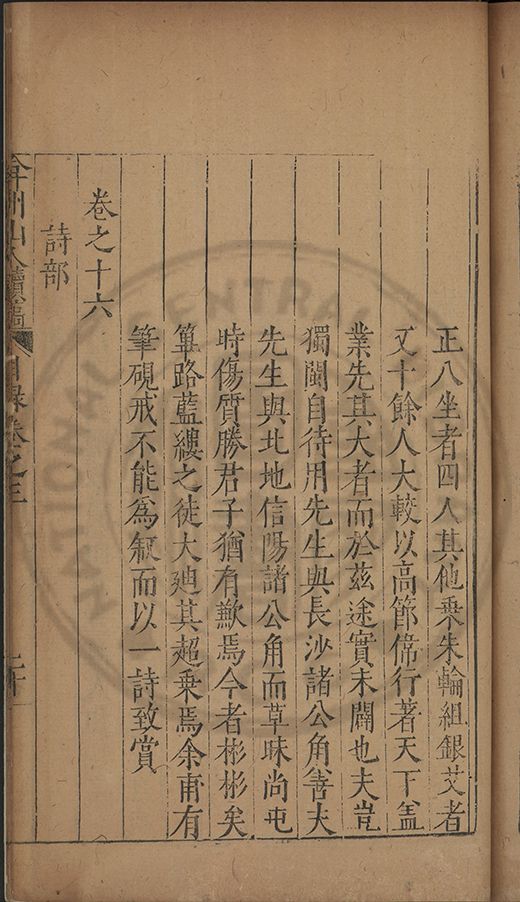 正八坐者四人其他乘朱輪組銀艾者
又十餘人大較以高節偉行著天下盖
業先其大者而於茲途實未闢也夫豈
獨閩自待用先生與長沙諸公角善夫
先生與北地信陽諸公角而草昧尚屯
時傷質勝君子猶有歉焉今者彬彬矣
篳路藍縷之徒大廸其超乘焉余甫有
筆硯戒不能爲叙而以一詩致賞
卷之十六
詩部
弇州山人續稿
目錄卷之三